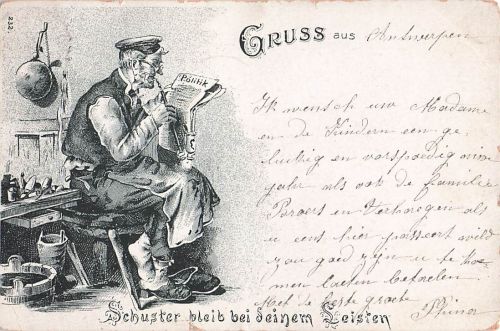 232.
GRUSS aus Antwerpen
Politik
Ik wensch uw Madame
en de Kindern een ge
lukkig en voorspoedig nieuw
jahr als ook de familie
en Verhoogen als
u eens hier passeert wild
zou goed zijn u te
men laeten
Met de beste groete
Schuster bleib bei deinem Leisten